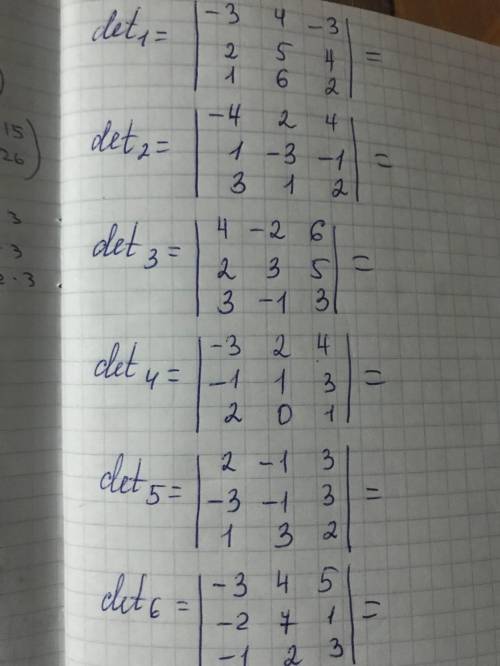 det₁ = | -3 4 -3 |
| 2 5 4 | =
| 1 6 2 |
det₂ = | -4 2 4 |
| 1 -3 -1 | =
| 3 1 2 |
det₃ = | 4 -2 6 |
| 2 3 5 | =
| 3 -1 3 |
det₄ = | -3 2 4 |
| -1 1 3 | =
| 2 0 1 |
det₅ = | 2 -1 3 |
| -3 -1 3 | =
| 1 3 2 |
det₆ = | -3 4 5 |
| -2 7 1 | =
| -1 2 3 |
15
26
3
· 3
2 · 3